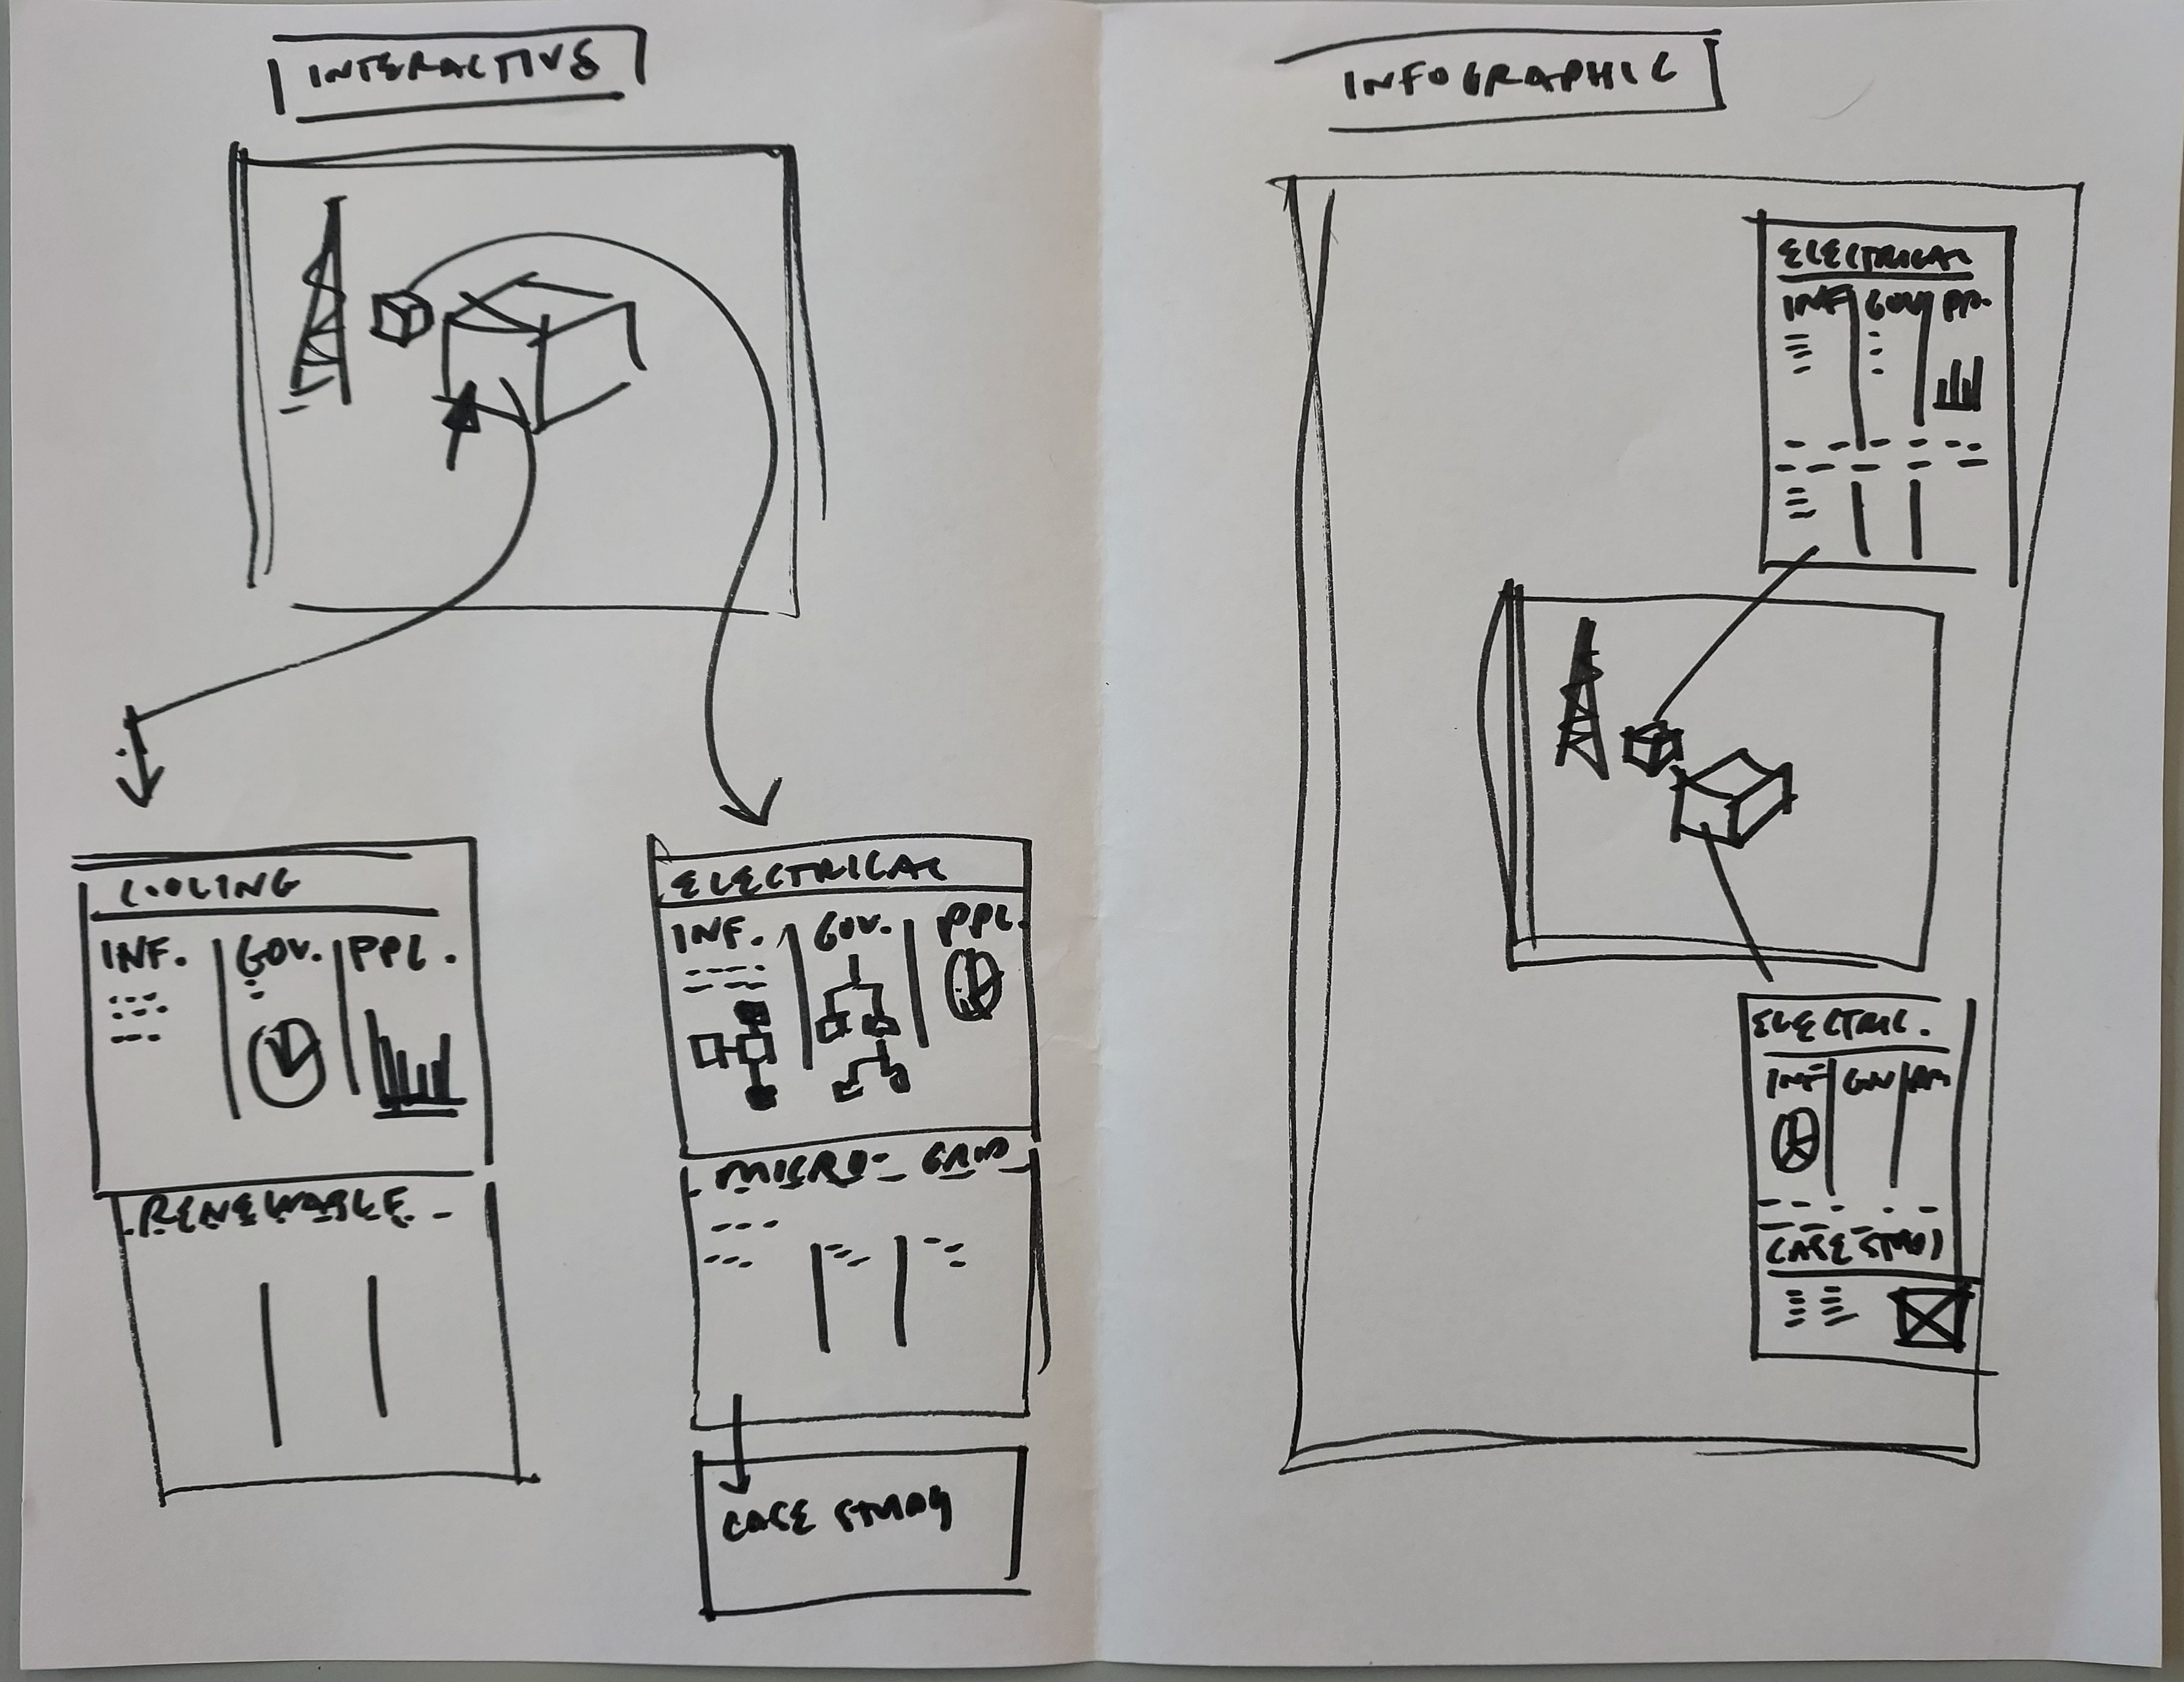 INTERACTIVE
COOLING
INF. GOV. PPL.
RENEWABLE
ELECTRICAL
INF. GOV. PPL.
MICRO-GRID
CASE STUDY
INFOGRAPHIC
ELECTRICAL
INF GOV PPL.
ELECTRIC.
INF GOV
CASE STUDY